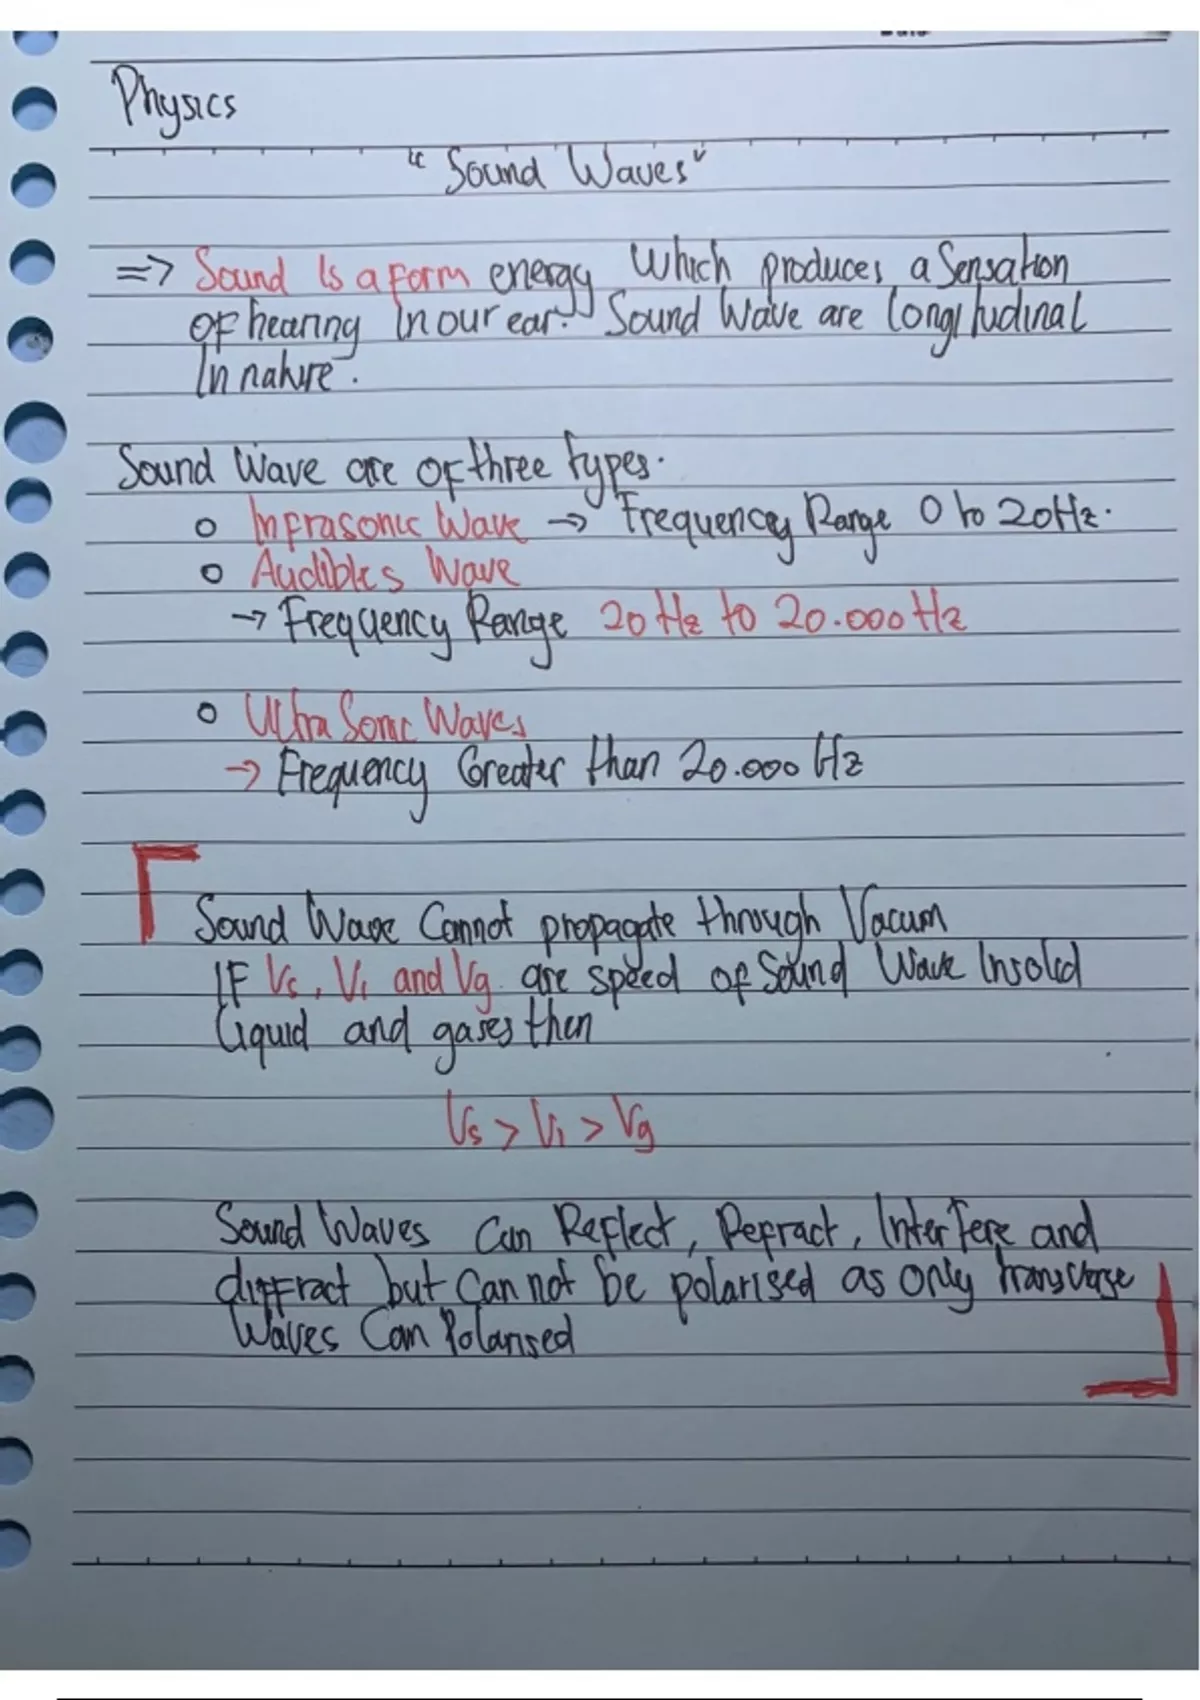 Physics
"Sound Waves"
=> Sound Is a form energy which produces a Sensation
of hearing in our ear. Sound Wave are longitudinal
In nature.
Sound Wave are of three types.
o Infrasonic Wave → Frequency Range 0 to 20Hz.
o Audibles Wave
→ Frequency Range 20 Hz to 20.000 Hz
o Ultra Sonic Waves
→ Frequency Greater than 20.000 Hz
Sound Wave Cannot propagate through Vacum
IF Vs, Vl and Vg are speed of Sound Wave Insolid
liquid and gases then
Vs > Vl > Vg
Sound Waves Can Reflect, Refract, Interfere and
diffract but Can not be polarised as only transverse
Waves Can Polarised